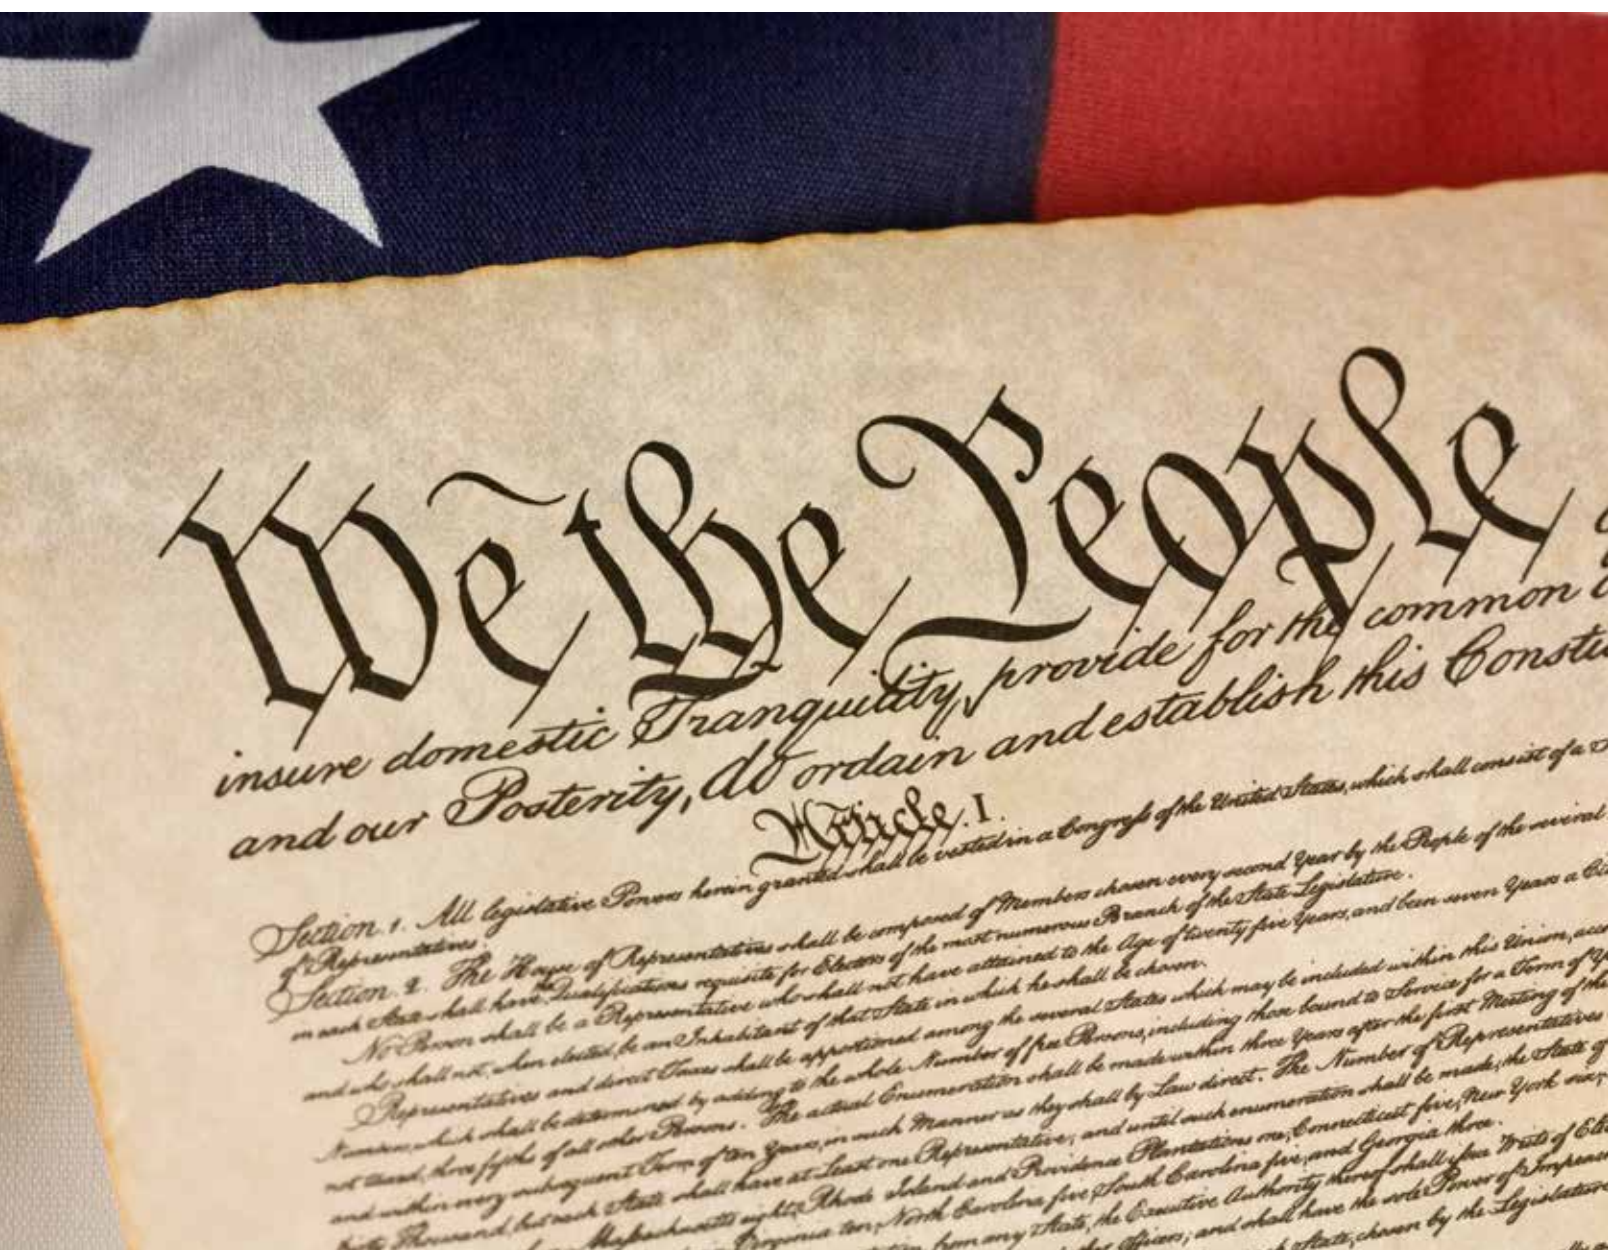 We the People
insure domestic Tranquility, provide for the common
and our Posterity, do ordain and establish this Constitu
Article. I.
Section. 1. All legislative Powers herein granted shall be vested in a Congress of the United States, which shall consist of a
of Representatives.
Section. 2. The House of Representatives shall be composed of Members chosen every second Year by the People of the several
in each State shall have the Qualifications requisite for Electors of the most numerous Branch of the State Legislature.
No Person shall be a Representative who shall not have attained to the Age of twenty five Years, and been seven Years a Citi
and who shall not, when elected, be an Inhabitant of that State in which he shall be chosen.
Representatives and direct Taxes shall be apportioned among the several States which may be included within this Union, acco
Numbers, which shall be determined by adding to the whole Number of free Persons, including those bound to Service for a Term of Y
not taxed, three fifths of all other Persons. The actual Enumeration shall be made within three Years after the first Meeting of the
and within every subsequent Term of ten Years, in such Manner as they shall by Law direct. The Number of Representatives
thirty Thousand, but each State shall have at Least one Representative; and until such enumeration shall be made, the State of
Massachusetts eight, Rhode Island and Providence Plantations one, Connecticut five, New York six,
Virginia ten, North Carolina five, South Carolina five, and Georgia three.
from any State, the Executive Authority thereof shall issue Writs of Ele
Officers; and shall have the sole Power of Impeac
State, chosen by the Legislature